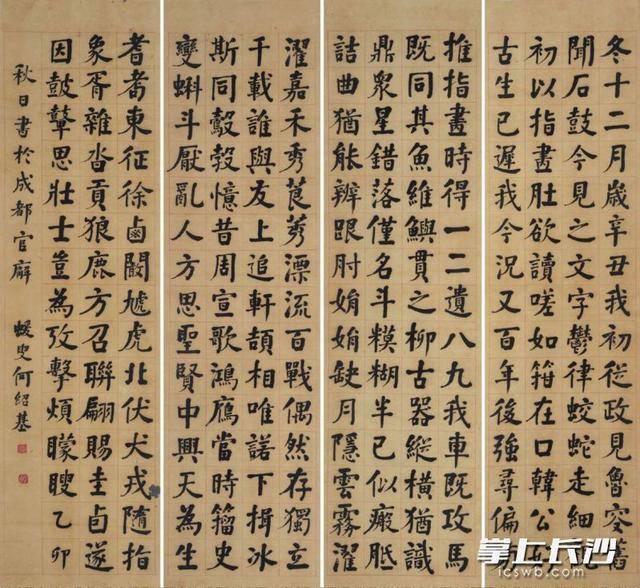 冬十二月歲辛丑我初從政見魯叟舊
聞石鼓今見之文字鬱律蛟蛇走細
初以指畫肚欲讀嗟如箝在口韓公好
古生已遲我今況又百年後強尋偏旁
推指畫時得一二遺八九我車既攻馬
既同其魚維鱮貫之柳古器縱橫猶識
鼎眾星錯落僅名斗糢糊半已似瘢胝
詰曲猶能辨跟肘娟娟缺月隱雲霧濯
濯嘉禾秀莨莠漂流百戰偶然存獨立
千載誰與友上追軒頡相唯諾下揖冰
斯同鷇㝅憶昔周宣歌鴻鴈當時籀史
變蝌斗厭亂人方思聖賢中興天為生
耆耇東征徐鹵闞虓虎北伏犬戎隨指
象胥雜沓貢狼鹿方召聯翩賜圭卣遂
因鼓鼙思壯士豈為攷擊煩矇瞍乙卯
秋日書於成都官廨 蝯叟何紹基
掌上长沙
icswb.com